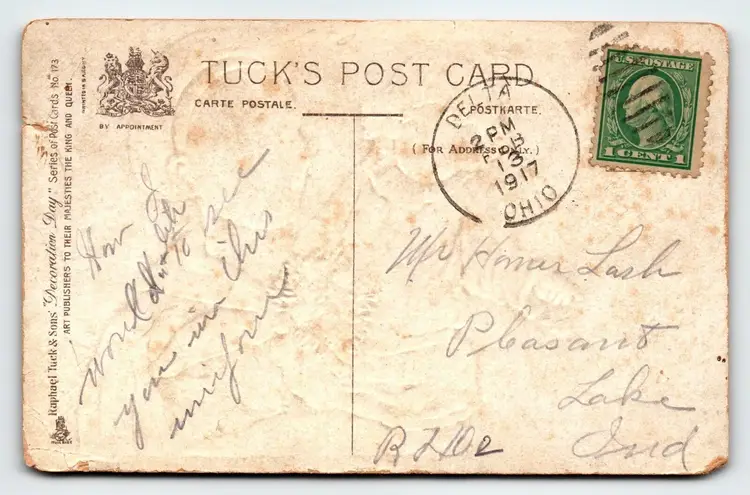 TUCK'S POST CARD
CARTE POSTALE.
POSTKARTE.
(FOR ADDRESS ONLY.)
BY APPOINTMENT
Raphael Tuck & Sons' "Decoration Day" Series of Post Cards No. 173
ART PUBLISHERS TO THEIR MAJESTIES THE KING AND QUEEN.
DELTA
2 PM
13
1917
OHIO
U.S. POSTAGE
1 CENT 1
How I
would like
to see
you in this
uniform
Mr Homer Lash
Pleasant
Lake
Ind